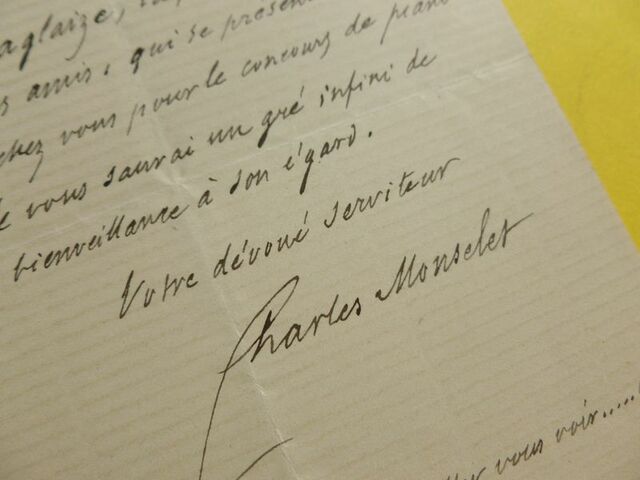 aglaize,
amis, qui se présen
chez vous pour le concours de piano
vous saurai un gré infini de
bienveillance à son égard.
Votre dévoué serviteur
Charles Monselet
vous voir.....